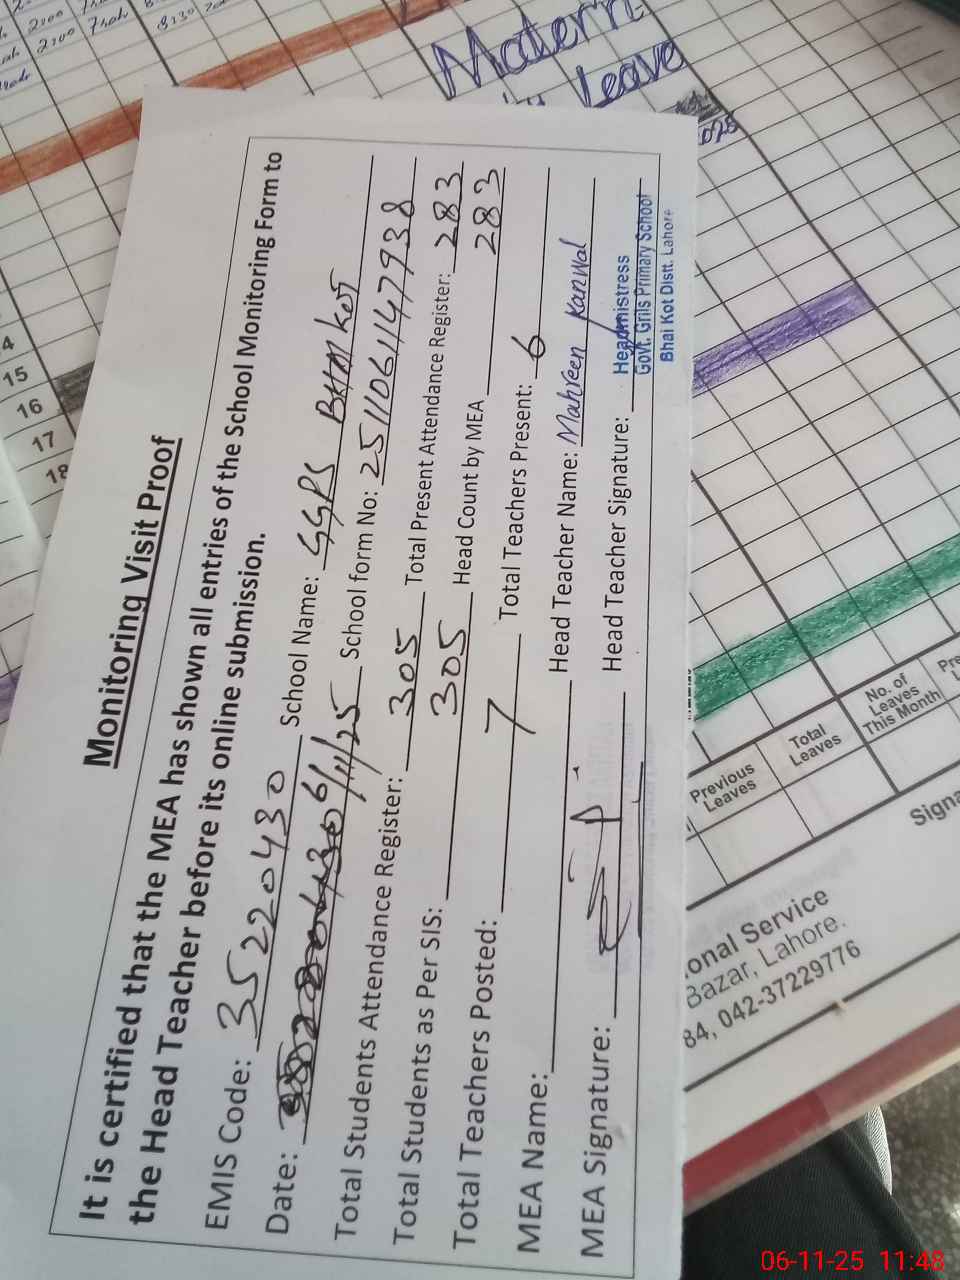 Monitoring Visit Proof
It is certified that the MEA has shown all entries of the School Monitoring Form to
the Head Teacher before its online submission.
EMIS Code: 35220430 School Name: GGPS BHAI KOT
Date: 06/11/25 School form No: 2511061147938
Total Students Attendance Register: 305 Total Present Attendance Register: 283
Total Students as Per SIS: 305 Head Count by MEA 283
Total Teachers Posted: 7 Total Teachers Present: 6
MEA Name: Head Teacher Name: Mahreen Kanwal
MEA Signature: Head Teacher Signature:
Headmistress
Govt. Grils Primary School
Bhai Kot Distt. Lahore
Matern
Leave
2200
2200
8230
4
15
16
17
18
Previous
Leaves
Total
Leaves
No. of
Leaves
This Month
Pre
Signa
onal Service
Bazar, Lahore.
84, 042-37229776
06-11-25 11:48